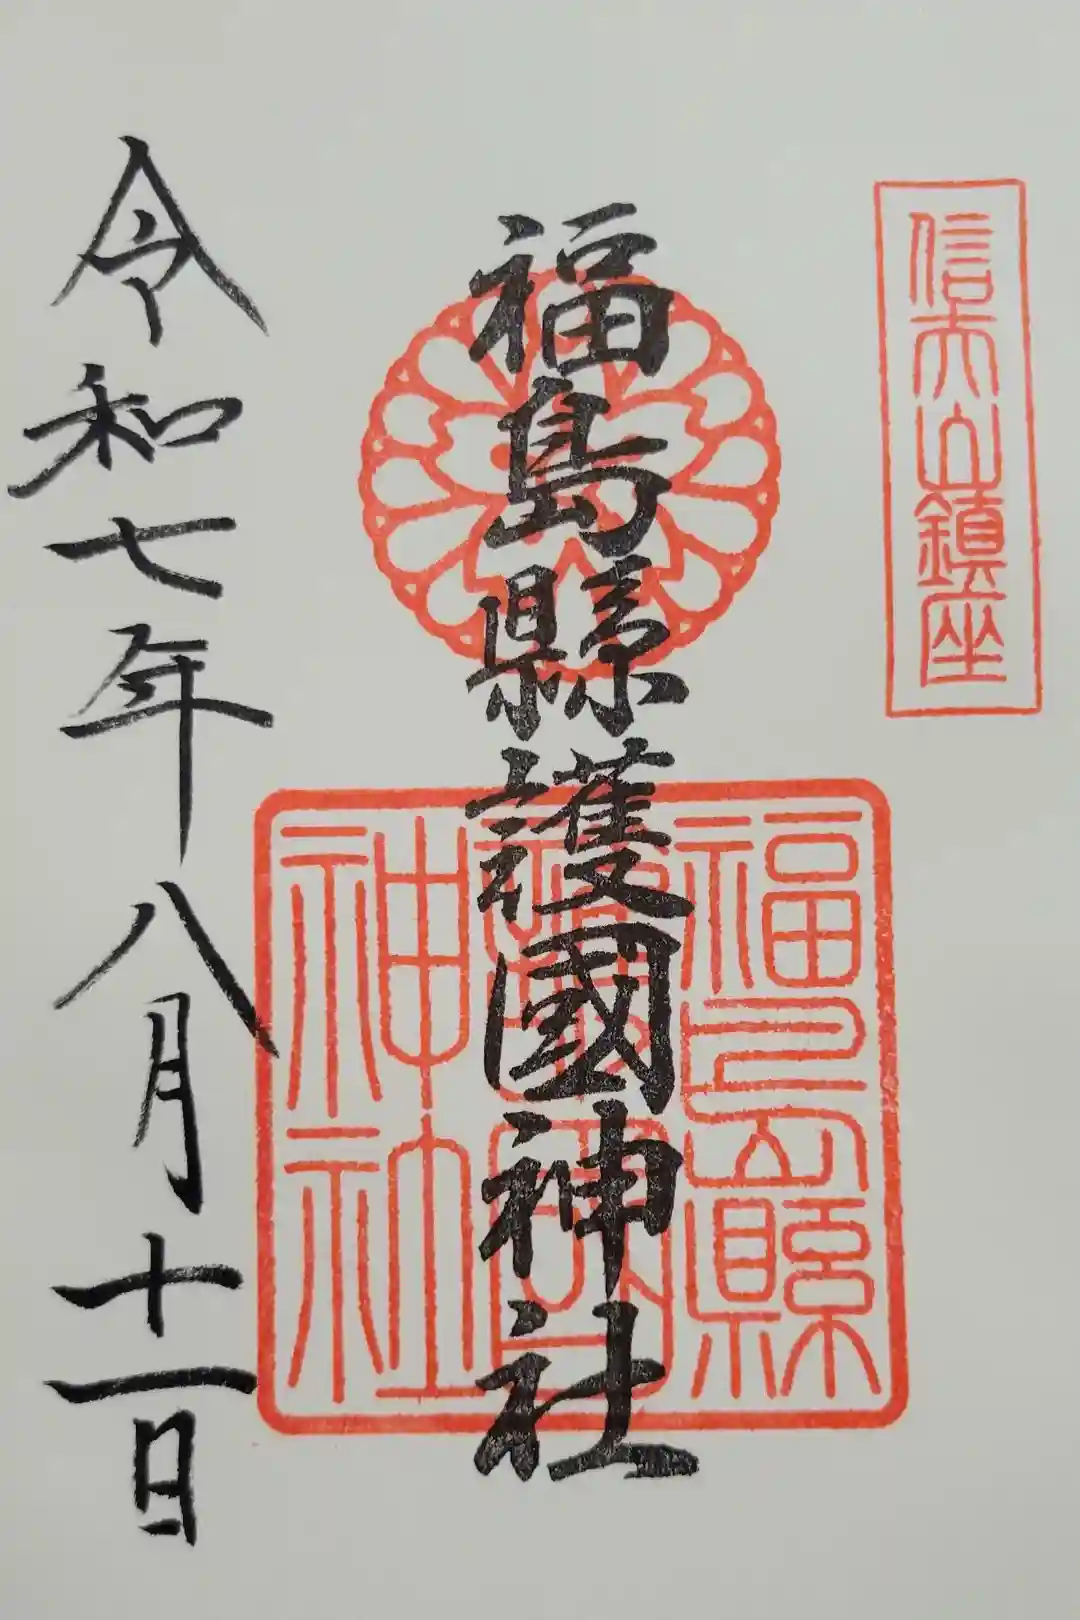 信夫山鎮座
福島縣護國神社
福島縣
護國
神社
令和七年八月十一日